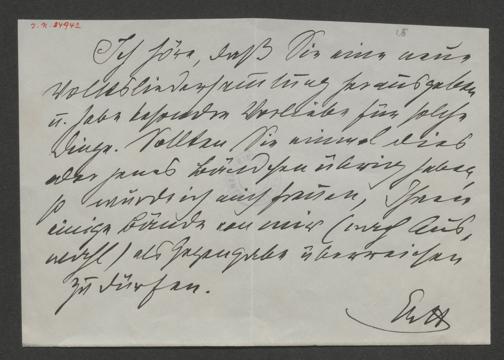 I. N. 24942
Ich höre, daß Sie eine neue
Volksliedersammlung herausgeben
u. habe besondre Vorliebe für solche
Dinge. Sollten Sie einmal dies
oder jenes Bändchen übrig haben,
so würde ich mich freuen, Ihnen
einige Bände von mir (nach Aus,
wahl) als Gegengabe überreichen
zu dürfen.